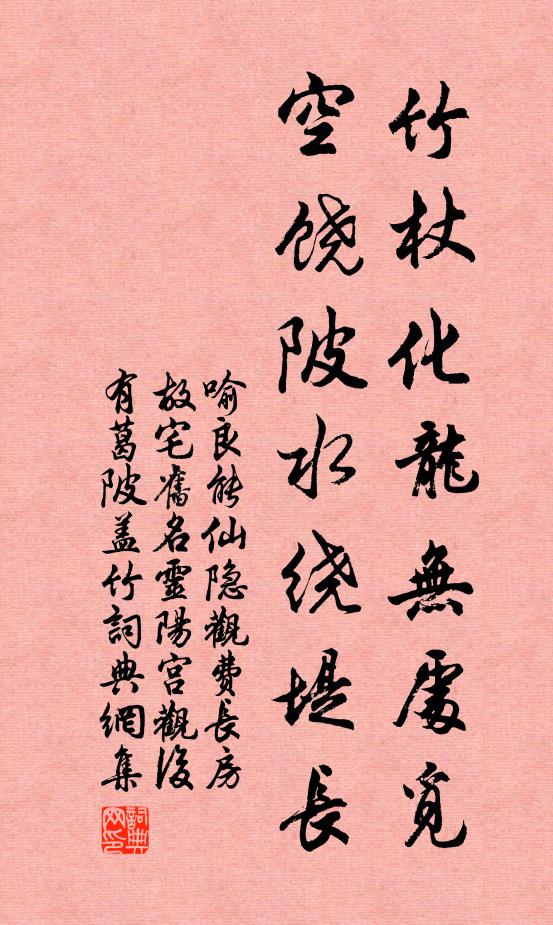 竹杖化龍無處覓
空饶陂水绕堤長
喻良能仙隐觀費長房
故宅舊名靈陽宫觀後
有葛陂盖竹詞典網集
詞典网印